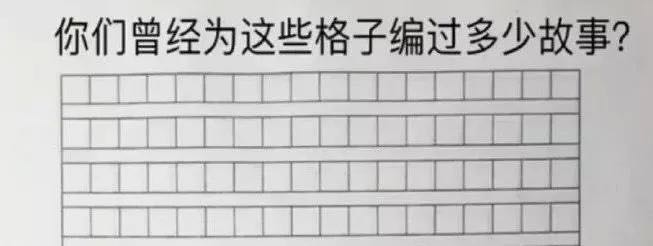 你们曾经为这些格子编过多少故事？